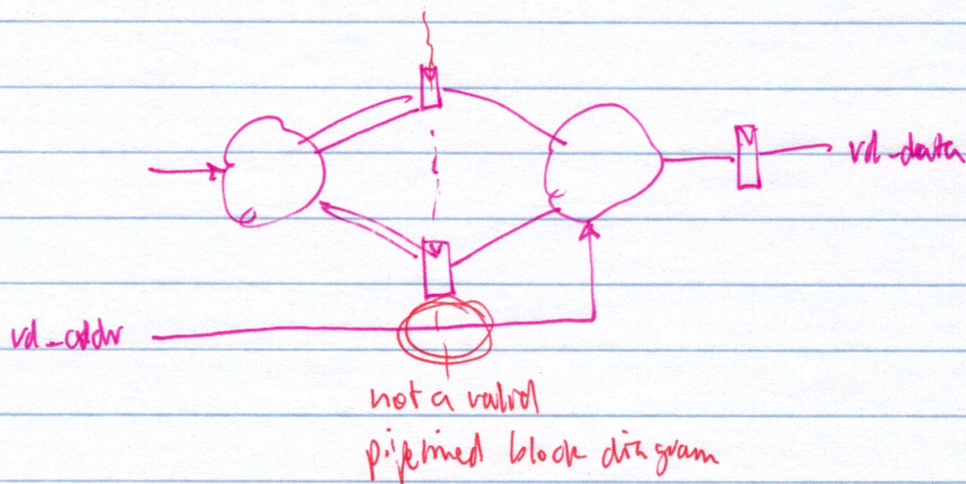 rd_data
rd_addr
not a valid
pipelined block diagram